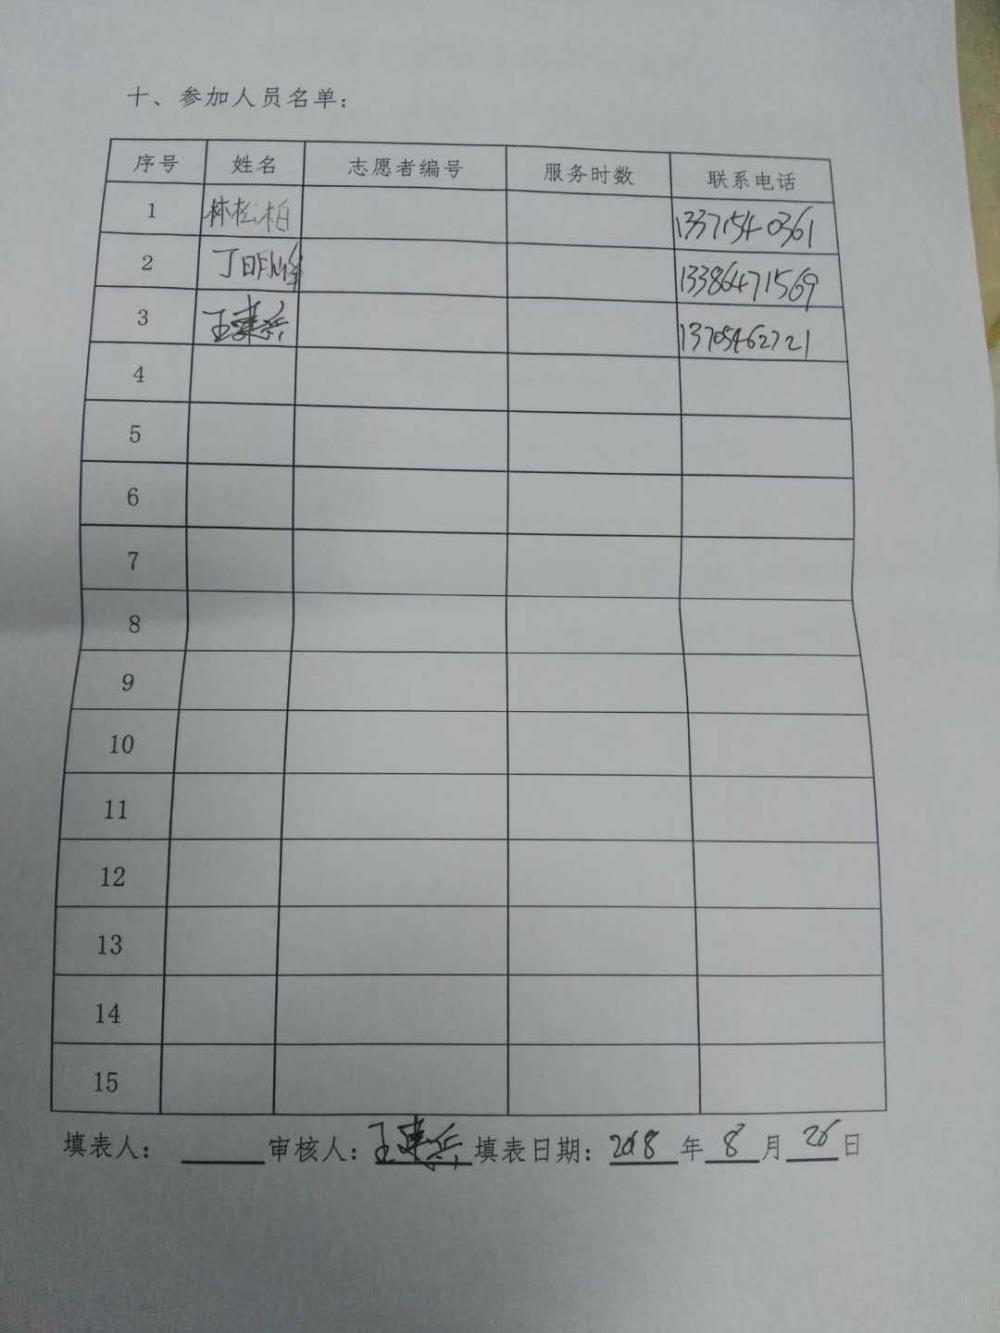 十、参加人员名单:
序号 姓名 志愿者编号 服务时数 联系电话
1 林松柏 13371540361
2 丁明峰 13386471569
3 王建兵 13705462721
4
5
6
7
8
9
10
11
12
13
14
15
填表人: 审核人:王建兵 填表日期:2018年8月26日